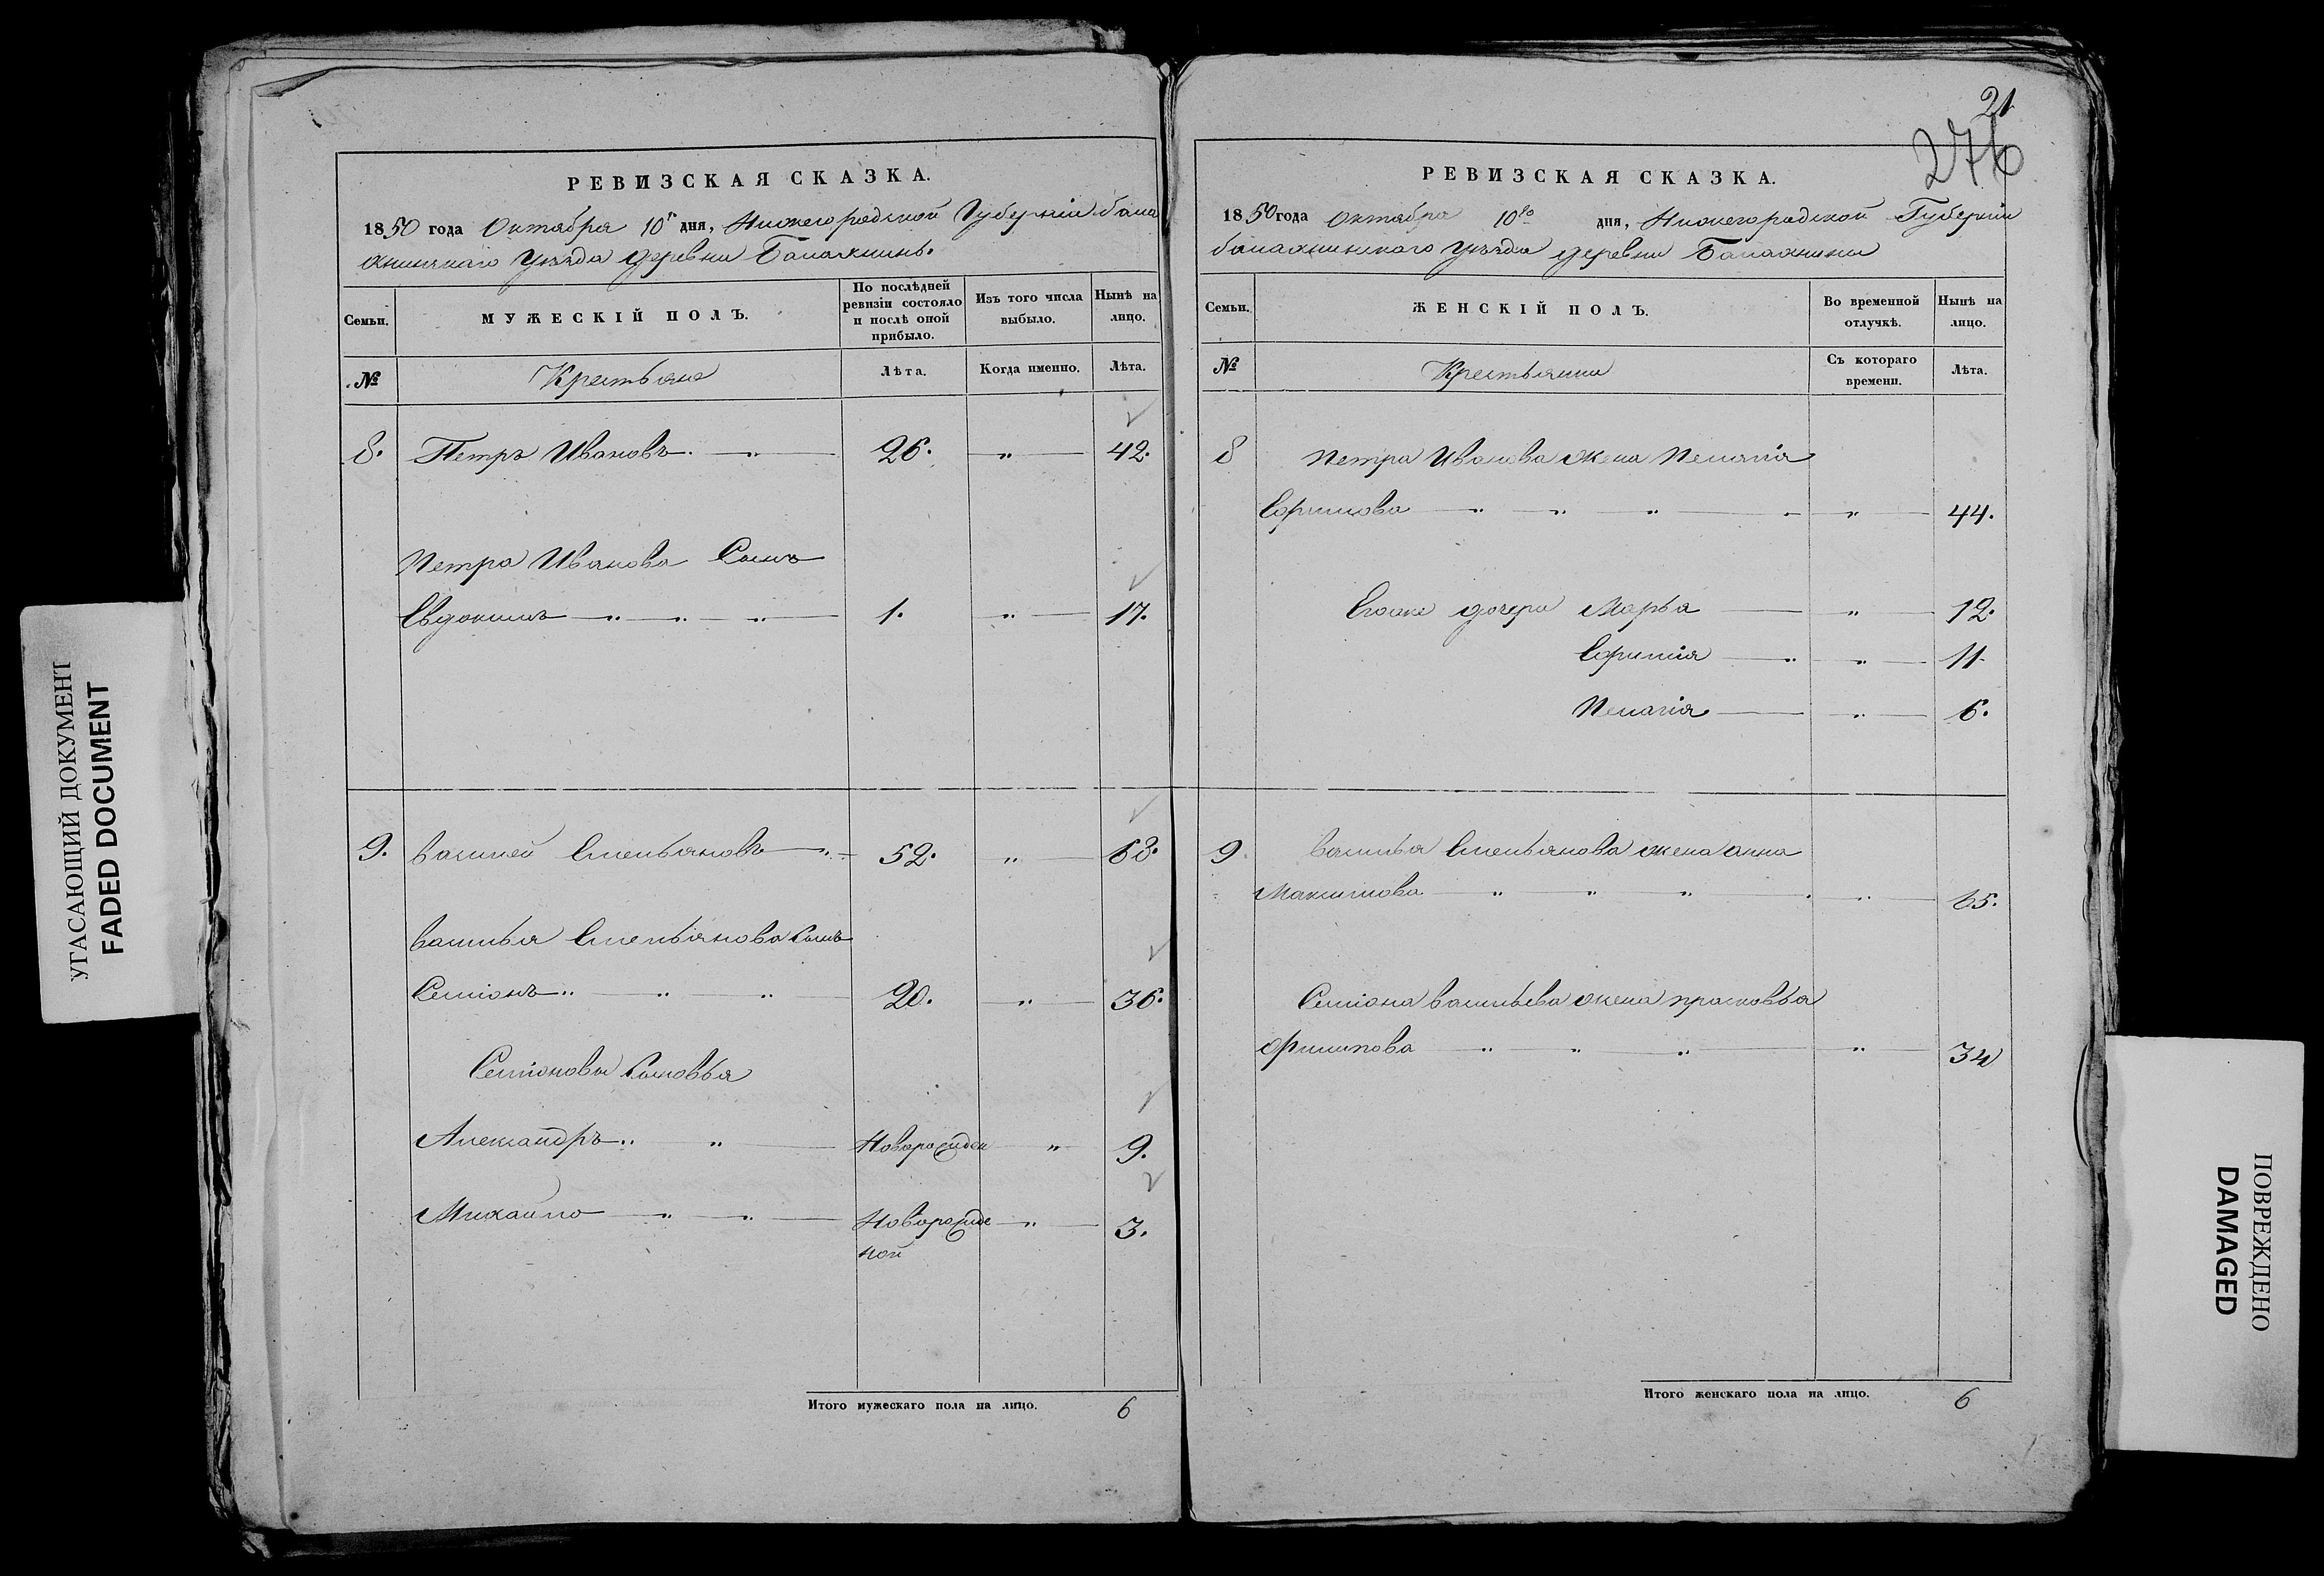 УГАСАЮЩИЙ ДОКУМЕНТ
FADED DOCUMENT
РЕВИЗСКАЯ СКАЗКА.
1850 года Октября 10г дня, Нижегородской Губерніи бала
хнинскаго Уѣзда деревни Балахнинъ.
Семьи.
МУЖЕСКІЙ ПОЛЪ.
По послѣдней ревизіи состояло и послѣ оной прибыло.
Изъ того числа выбыло.
Нынѣ на лицо.
№
Крестьяне
Лѣта.
Когда именно.
Лѣта.
8. Петръ Ивановъ. 26. " 42.
Петра Иванова Сынъ
Евдокимъ " " " 1. " 17.
9. Василей Степановъ " 52. " 68.
Василья Степьянова Сынъ
Семіонъ " " " 20. " 36.
Семіоновы Сыновья
Александръ " " Новорожден " 9.
Михайло " " Новорожде " 3.
ной
Итого мужескаго пола на лицо. 6
21
276
РЕВИЗСКАЯ СКАЗКА.
1850 года Октября 10го дня, Нижегородской Губерніи
балахнинскаго Уѣзда деревни Балахнини
Семьи.
ЖЕНСКІЙ ПОЛЪ.
Во временной отлучкѣ.
Нынѣ на лицо.
№
Крестьянки
Съ котораго времени.
Лѣта.
8 Петра Иванова жена Пелагія
Ефимова " " " " 44.
Егоже дочери Марья " 12.
Ефимія " " 11.
Пелагія " 6.
9 Василья Степьянова жена анна
Максимова " " " " 65.
Семіона васильева жена прасковья
Филипова " " " " 34
Итого женскаго пола на лицо. 6
ПОВРЕЖДЕНО
DAMAGED